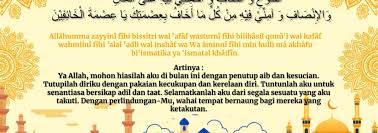 وَالْإِنْصَافِ وَ آمِنِّي فِيْهِ مِنْ كُلِّ مَا أَخَافُ بِعِصْمَتِكَ يَا عِصْمَةَ الْخَائِفِيْنَ
Allâhumma zayyinî fîhi bissitri wal 'afâf wasturnî fîhi bilibâsil qunû'i wal kafâf
wahmilnî fîhi 'alal 'adli wal inshâf wa Wa âminnî fîhi min kulli mâ akhâfu
bi'ismatika ya 'ismatal khâifîn.
Artinya :
Ya Allah, mohon hiasilah aku di bulan ini dengan penutup aib dan kesucian.
Tutupilah diriku dengan pakaian kecukupan dan kerelaan diri. Tuntunlah aku untuk
senantiasa bersikap adil dan taat. Selamatkanlah aku dari segala sesuatu yang aku
takuti. Dengan perlindungan-Mu, wahai tempat bernaung bagi mereka yang
ketakutan.